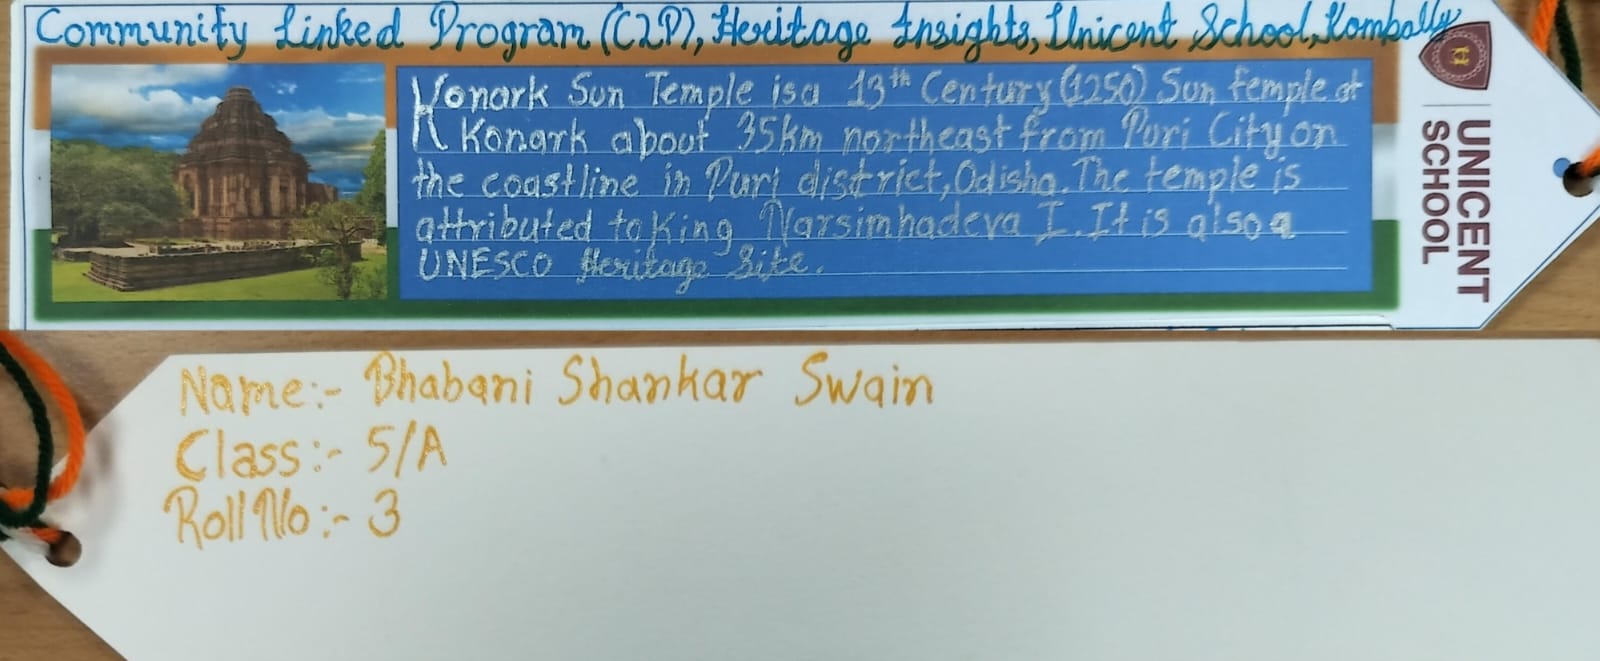 Community Linked Program (C2P), Heritage Insights, Unicent School, Kompally
Konark Sun Temple is a 13th Century (1250) Sun temple at
Konark about 35km northeast from Puri City on
the coastline in Puri district, Odisha. The temple is
attributed to King Narsimhadeva I. It is also a
UNESCO Heritage Site.
UNICENT
SCHOOL
Name:- Bhabani Shankar Swain
Class:- 5/A
Roll No:- 3